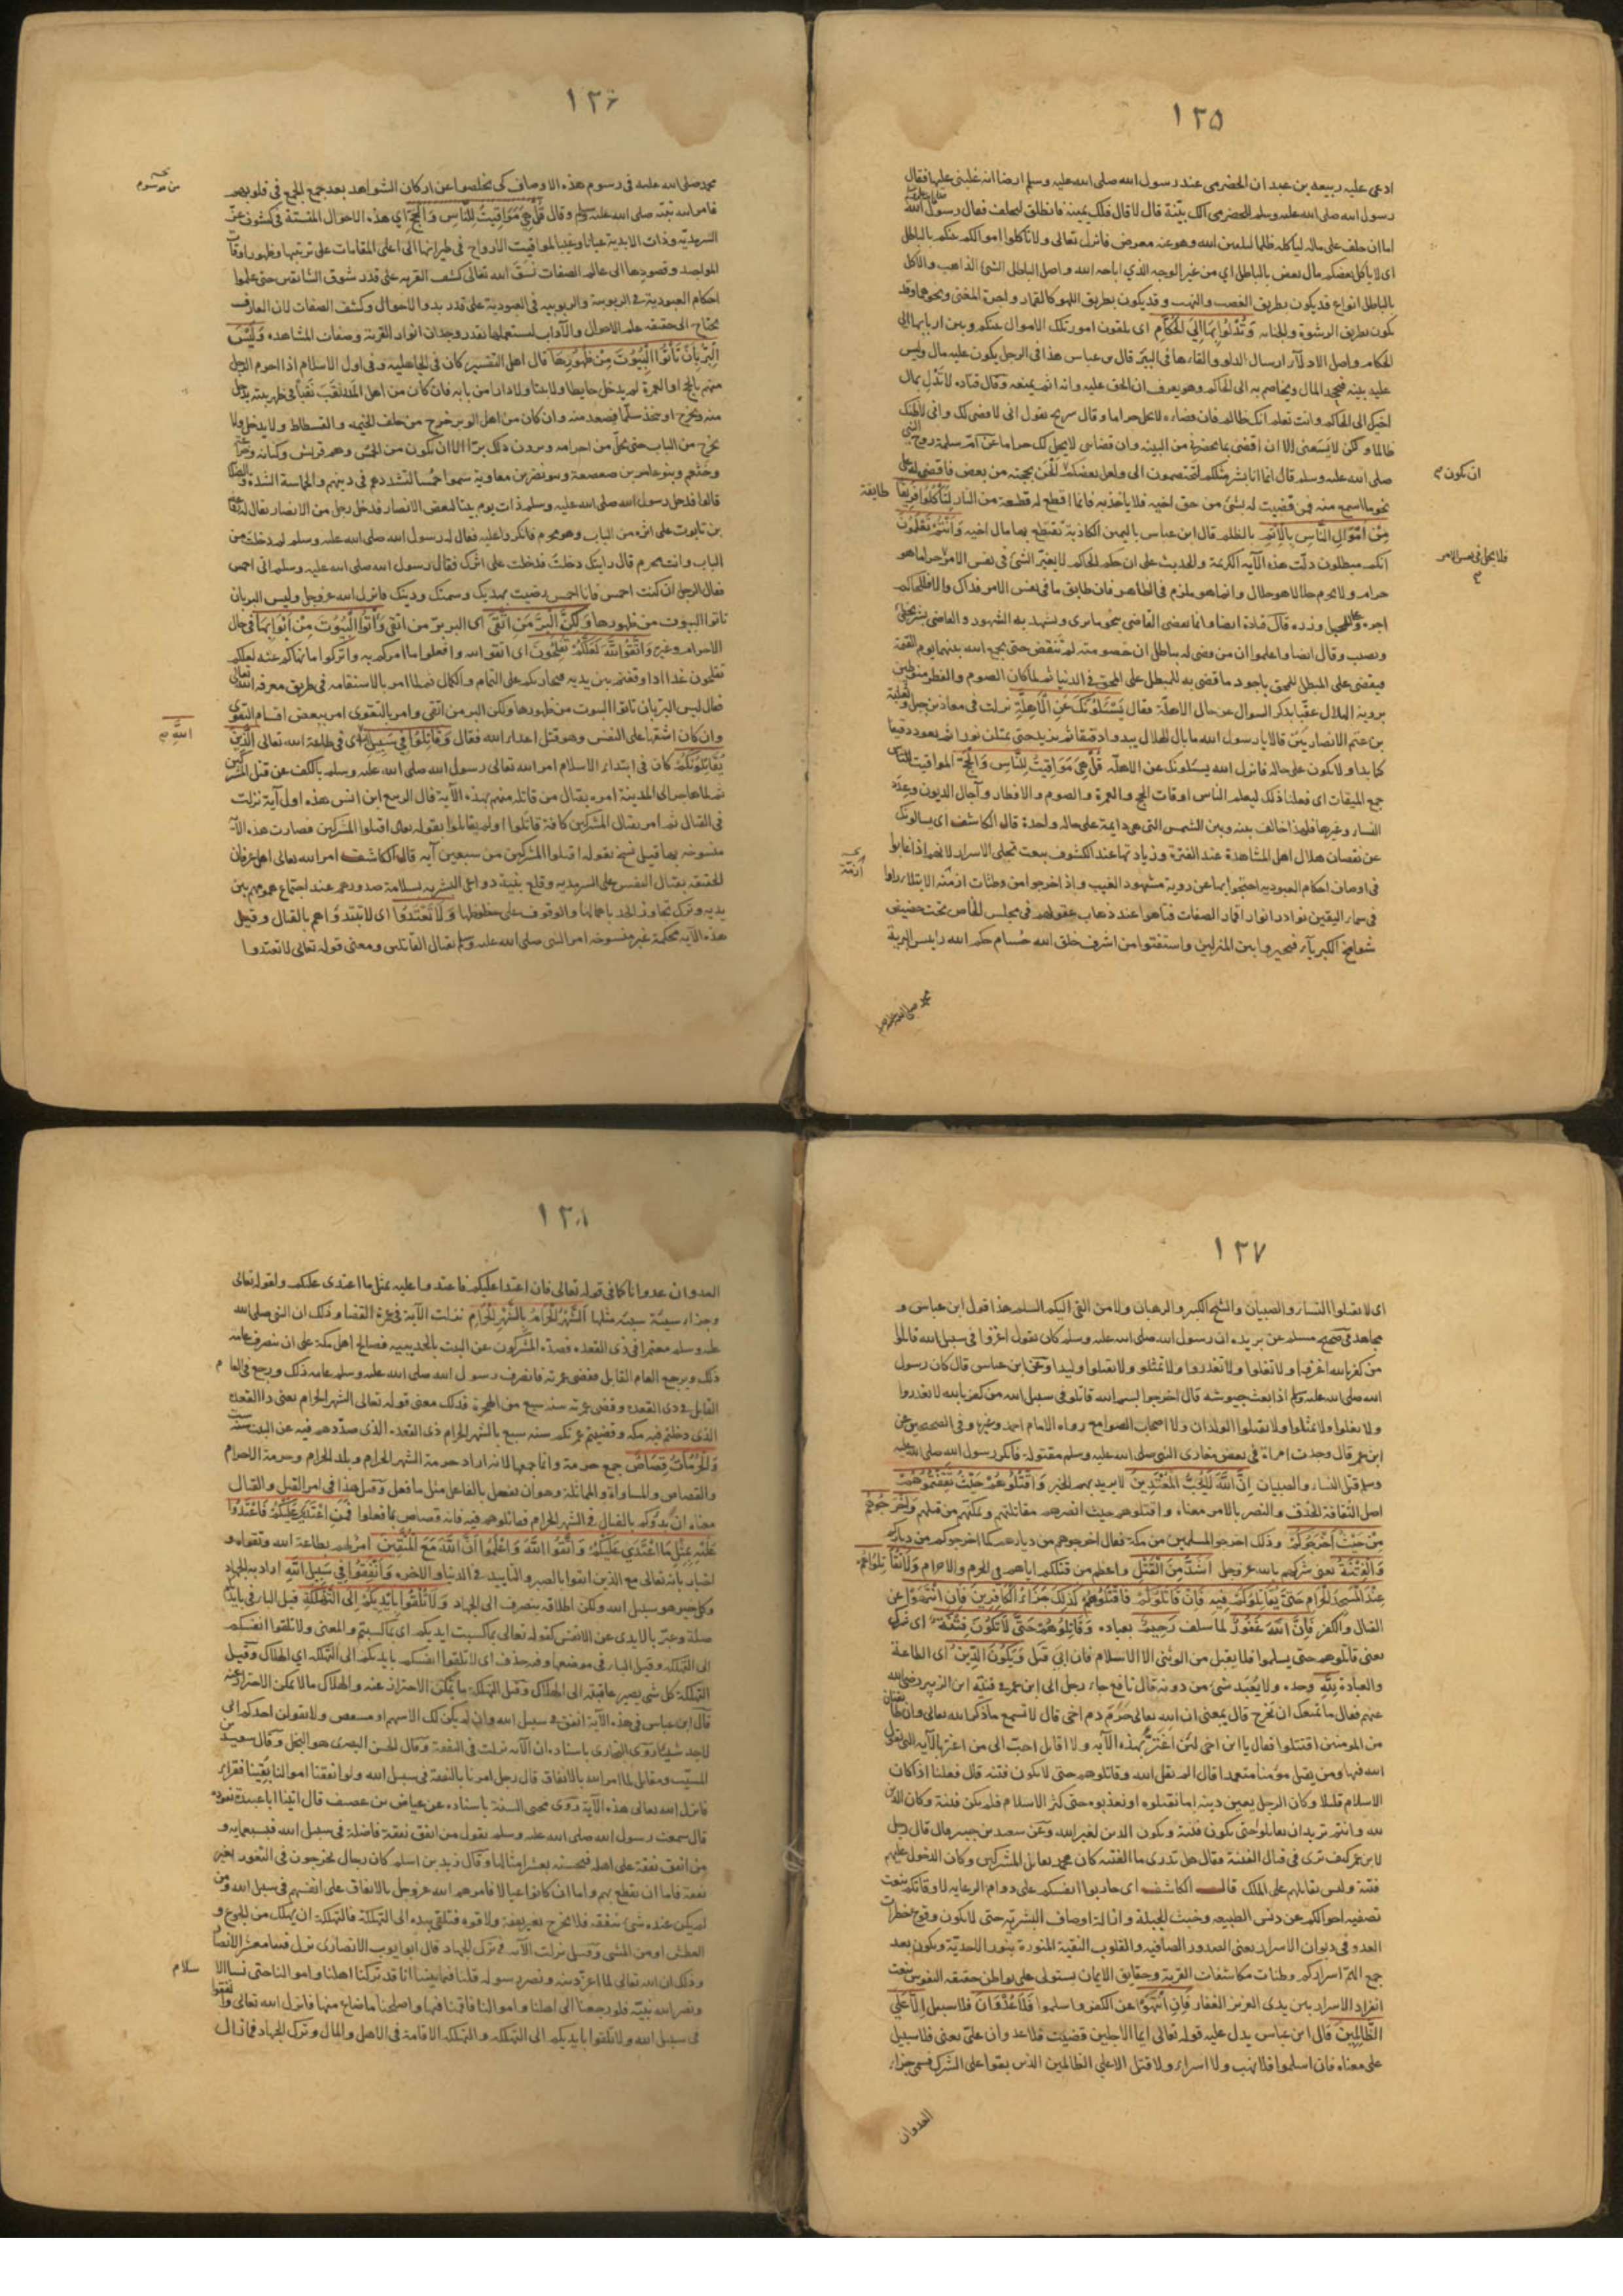 ١٢٥
ادعى عليه ربيعه بن عبدان الحضرمى عند رسول الله صلى الله عليه وسلم ارضا انه غلبنى عليها فقال
رسول الله صلى الله عليه وسلم للحضرمى الك بيّنة قال لا قال فلك يمينه فانطلق ليحلف فقال رسول الله
اما ان حلف على ماله لياكله ظلما ليلقين الله وهو عنه معرض فانزل تعالى ولا تأكلوا اموالكم بينكم بالباطل
اى لا يأكل بعضكم مال بعض بالباطل اي من غير الوجه الذي اباحه الله واصل الباطل الشئ الذاهب والأكل
بالباطل انواع قد يكون بطريق الغصب والنهب وقد يكون بطريق اللهو كالقمار واجرة المغنى ونحوهما وقد
يكون بطريق الرشوة والخيانه وَتُدْلُوا بِهَا اِلَى الْحُكَّامِ اى تلقون امور تلك الاموال بينكم وبين اربابها الى
الحكام واصل الادلآء ارسال الدلو والقاءها فى البئر قال بن عباس هذا فى الرجل يكون عليه مال وليس
عليه بينه فيجحد المال ويخاصم به الى الحاكم وهو يعرف ان الحق عليه وانه اثم بمنعه وقال قتاده لا تُدْلِ بمال
اخيك الى الحاكم وانت تعلم انك ظالم فان قضاءه لا يحل حراما وقال سريح يقول انى لاقضى لك وانى لأظنك
ظالما ولكن لا يسعنى الا ان اقضى بما يحضرنى من البينه وان قضاى لا يحل لك حراما عن ام سلمة زوج النبي
ان يكون
صلى الله عليه وسلم قال انما انا بشر مثلكم تختصمون الى ولعل بعضكم الحن بحجته من بعض فاقضى له على
نحو ما اسمع منه فمن قضيت له بشئ من حق اخيه فلا ياخذ به فانما اقطع له قطعة من النار لِتَأْكُلُوا فَرِيقًا
طايفة
مِنْ اَمْوَالِ النَّاسِ بِالْاِثْمِ بالظلم قال ابن عباس باليمين الكاذبة تقتطع بها مال اخيه وَاَنْتُمْ تَعْلَمُونَ
انكم مبطلون دلّت هذه الآيه الكريمة والحديث على ان حكم الحاكم لا يغير الشئ فى نفس الامر
فلا يحل فى نفس الامر
اجره وزره قال قتادة ايضا وانما يقضى القاضى بنحو ما يرى ويشهد به الشهود والقاضى بشر يخطئ
ويصيب وقال ايضا واعلموا ان من قضى له بباطل ان خصومته لم تنقض حتى يجمع الله بينهما يوم القيمة
فيقضى على المبطل للمحق باجود ما قضى به للمبطل على المحق فى الدنيا ثم لما كان الصوم والفطر منوطين
بروية الهلال عقّبها بذكر السوال عن حال الاهلّة فقال يَسْئَلُونَكَ عَنِ الْاَهِلَّةِ نزلت فى معاذ بن جبل وثعلبة
بن غنم الانصاريين قالا يا رسول الله ما بال الهلال يبدو دقيقا ثم يزيد حتى يمتلئ نورا ثم يعود دقيقا
كما بدا ولا يكون على حاله فانزل الله يسئلونك عن الاهلّه قُلْ هِيَ مَوَاقِيتُ لِلنَّاسِ وَالْحَجِّ المواقيت
جمع الميقات اى فعلنا ذلك ليعلم الناس اوقات الحج والعمرة والصوم والافطار وآجال الديون وعِدَد
النساء وغيرها فلهذا خالف بينه وبين الشمس التى هى دايمة على حاله واحدة قال الكاشف اى يسالونك
عن نقصان هلال اهل المشاهدة عند الفترة وزيادتها عند الكشوف بنعت تجلى الاسرار لانهم اذا غابوا
ازمّة
فى اوصاف احكام العبوديه احتجبوا بها عن روية مشهود الغيب واذ اخرجوا من وطئات ازمّته الابتلاء راوا
فى سماء اليقين نوادر انوار اقمار الصفات فتاهوا عند ذهاب عقولهم فى مجلس الخاص تحت حضيض
شوامخ الكبريآء فتحيروا بين المنزلين واستفتوا من اشرف خلق الله حُسام حكم الله رايس البرية
محمد صلى الله عليه وسلم
١٢٦
محمد صلى الله عليه فى رسوم هذه الاوصاف كى يخلصوا عن اركان الشواهد بعد جمع الجمع فى قلوبهم
من رسوم
فامر الله نبيّه صلى الله عليه وسلم وقال قُلْ هِيَ مَوَاقِيتُ لِلنَّاسِ وَالْحَجِّ اي هذه الاحوال
السرمديّه وذات الابدية عيانا وغيبا لمواقيت الارواح فى طيرانها الى اعلى المقامات على ترتيبها وظهور اوقات
المواجيد وقصودها الى عالم الصفات نسق الله تعالى كشف القربه على قدر شوق الشايقين حتى علموا
احكام العبودية فى الربوبية والربوبيه فى العبودية على قدر بدو الاحوال وكشف الصفات لان العارف
يحتاج الى حقيقه علم الاحوال والآداب ليستعملها بقدر وجدان انوار القربة وصفات المشاهده وَلَيْسَ
الْبِرُّ بِاَنْ تَأْتُوا الْبُيُوتَ مِنْ ظُهُورِهَا قال اهل التفسير كان فى الجاهليه وفى اول الاسلام اذا احرم الرجل
منهم بالحج او العمرة لم يدخل حايطا ولا بيتا ولا دارا من بابه فان كان من اهل المدر نقب نَقْبًا فى ظهر بيته يدخل
منه ويخرج او يتخذ سلّما فيصعد منه وان كان من اهل الوبر خرج من خلف الخيمه والفسطاط ولا يدخل ولا
يخرج من الباب حتى يحلّ من احرامه ويرون ذلك برّا الا ان يكون من الحُمْس وهم قريش وكنانه
وخثعم وبنو عامر بن صعصعة وبنو نضر بن معاوية سموا حُمْسا لتشددهم فى دينهم والحماسة الشدة
قالوا فدخل رسول الله صلى الله عليه وسلم ذات يوم بيتا لبعض الانصار فدخل رجل من الانصار يقال له
بن تابوت على اثره من الباب وهو محرم فانكروا عليه فقال له رسول الله صلى الله عليه وسلم لم دخلت من
الباب وانت محرم قال رايتك دخلت فدخلت على اثرك فقال رسول الله صلى الله عليه وسلم انى احمس
فقال الرجل ان كنت احمس فانا احمس رضيت بهديك وسمتك ودينك فانزل الله عز وجل وليس البر بان
تاتوا البيوت من ظهورها وَلَكِنَّ الْبِرَّ مَنِ اتَّقَى اى البر برّ من اتقى وَأْتُوا الْبُيُوتَ مِنْ اَبْوَابِهَا فى حال
الاحرام وغيره وَاتَّقُوا اللّهَ لَعَلَّكُمْ تُفْلِحُونَ اى اتقوا الله وافعلوا ما امركم به واتركوا ما نهاكم عنه لعلكم
تفلحون غدا اذا وقفتم بين يديه فيجازيكم على التمام والكمال ثم لما امر بالاستقامه فى طريق معرفه الله تعالى
فقال ليس البر بان تاتوا البيوت من ظهورها ولكن البر من اتقى وامر بالتقوى امر ببعض اقسام التقوى
وان كان اشقها على النفس وهو قتل اعداء الله فقال وَقَاتِلُوا فِي سَبِيلِ اى فى طاعة الله تعالى الَّذِينَ
اللّهِ
يُقَاتِلُونَكُمْ كان فى ابتداء الاسلام امر الله تعالى رسول الله صلى الله عليه وسلم بالكف عن قتل المشركين
ثم لما هاجر الى المدينة امره بقتال من قاتله منهم بهذه الآية قال الربيع ابن انس هذه اول آية نزلت
فى القتال ثم امر بقتال المشركين كافة قاتلوا اولم يقاتلوا بقوله تعالى اقتلوا المشركين فصارت هذه الآية
منسوخه بها قيل نسخ بقوله اقتلوا المشركين من سبعين آيه قال الكاشف امر الله تعالى اهل عرفان
الحقيقه بقتال النفس على السرمديه وقلع بقية دواعى البشريه بسلامة صدورهم عند اجتماع همومهم بين
يديه وترك تجاوز الحد باهمالها والوقوف على حظوظها وَلَا تَعْتَدُوا اى لا تبتدؤاهم بالقتال وقيل
هذه الآية محكمة غير منسوخه امر النبى صلى الله عليه وسلم بقتال القاتلين ومعنى قوله تعالى لا تعتدوا
١٢٧
اى لا تقتلوا النساء والصبيان والشيخ الكبير والرهبان ولا من القى اليكم السلم هذا قول ابن عباس و
مجاهد فى صحيح مسلم عن بريده ان رسول الله صلى الله عليه وسلم كان يقول اغزوا فى سبيل الله قاتلوا
من كفر بالله اغزوا ولا تغلوا ولا تغدروا ولا تمثلو ولا تقتلوا وليدا وعن ابن عباس قال كان رسول
الله صلى الله عليه وسلم اذا بعث جيوشه قال اخرجوا بسم الله قاتلو فى سبيل الله من كفر بالله لا تغدروا
ولا تغلوا ولا تمثلوا ولا تقتلوا الولدان ولا اصحاب الصوامع رواه الامام احمد وغيره وفى الصحيحين عن
ابن عمر قال وجدت امراة فى بعض مغازى النبى صلى الله عليه وسلم مقتولة فانكر رسول الله صلى الله عليه
وسلم قتل النساء والصبيان اِنَّ اللّهَ لَا يُحِبُّ الْمُعْتَدِينَ لا يريد بهم الخير وَاقْتُلُوهُمْ حَيْثُ ثَقِفْتُمُوهُمْ
اصل الثقافة الحذق والبصر بالامر معناه واقتلوهم حيث ابصرتم مقاتلتهم وتمكنتم من قتلهم وَاَخْرِجُوهُمْ
مِنْ حَيْثُ اَخْرَجُوكُمْ وذلك اخرجوا المسلمين من مكة فقال اخرجوهم من ديارهم كما اخرجوكم من دياركم
وَالْفِتْنَةُ يعنى شركهم بالله عز وجل اَشَدُّ مِنَ الْقَتْلِ واعظم من قتلكم اياهم فى الحرم والاحرام وَلَا تُقَاتِلُوهُمْ
عِنْدَ الْمَسْجِدِ الْحَرَامِ حَتَّى يُقَاتِلُوكُمْ فِيهِ فَاِنْ قَاتَلُوكُمْ فَاقْتُلُوهُمْ كَذَلِكَ جَزَاءُ الْكَافِرِينَ فَاِنِ انْتَهَوْا عن
القتال والكفر فَاِنَّ اللّهَ غَفُورٌ لما سلف رَحِيمٌ بعباده وَقَاتِلُوهُمْ حَتَّى لَا تَكُونَ فِتْنَةٌ اى شرك
يعنى قاتلوهم حتى يسلموا فلا يقبل من الوثنى الا الاسلام فان ابى قتل وَيَكُونَ الدِّينُ اى الطاعة
والعبادة لِلّهِ وحده ولا يُعْبَد شئ من دونه قال نافع جاء رجل الى ابن عمر فى فتنة ابن الزبير رضى الله
عنهم فقال ما يمنعك ان تخرج قال يمنعنى ان الله تعالى حرّم دم اخى قال لا تسمع ما ذكر الله تعالى وان طائفتان
من المومنين اقتتلوا فقال يا ابن اخى لئن اغترّ بهذه الآيه ولا اقاتل احبّ الى من اغتر بالآيه التى يقول
الله فيها ومن يقتل مؤمنا متعمدا قال الم يقل الله وقاتلوهم حتى لا تكون فتنه قال فعلنا اذ كان
الاسلام قليلا وكان الرجل يفتن دينه اما يقتلوه او يعذبوه حتى كثر الاسلام فلم يكن فتنة وكان الدين
لله وانتم تريدان تقاتلوا حتى تكون فتنة ويكون الدين لغير الله وعن سعيد بن جبير قال قال رجل
لابن عمر كيف ترى فى قتال الفتنة فقال هل تدرى ما الفتنه كان محمد يقاتل المشركين وكان الدخول عليهم
فتنة وليس بقتالهم على الملك قال الكاشف اى حاربوا انفسكم على دوام الرعايه لا وقاتكم بنعت
تصفيه احوالكم عن دنس الطبيعه وخبث الجبلة وازالة اوصاف البشريّه حتى لا يكون وقوع خطرات
العدو فى ديوان الاسرار يعنى الصدور الصافيه والقلوب النقية المنورة بنور الاحديّة ويكون بعد
جمع الهمّ اسراركم وطنات مكاشفات القربة وحقايق الايمان يستولى على بواطن حقيقه النفوس بنعت
انفراد الاسرار بين يدى العزيز الغفار فَاِنِ انْتَهَوْا عن الكفر واسلموا فَلَا عُدْوَانَ فلا سبيل اِلَّا عَلَى
الظَّالِمِينَ قال ابن عباس يدل عليه قوله تعالى ايّما الاجلين قضيت فلا عدوان علىّ يعنى فلا سبيل
على معناه فان اسلموا فلا نهب ولا اسراء ولا قتل الا على الظالمين الذين بقوا على الشرك فسمى جزاء
العدوان
١٢٨
العدوان عدوانا كما فى قوله تعالى فان اعتدا عليكم فاعتدوا عليه بمثل ما اعتدى عليكم ولقوله تعالى
وجزاء سيئة سيئة مثلها اَلشَّهْرُ الْحَرَامُ بِالشَّهْرِ الْحَرَامِ نزلت الآية فى عمرة القضا وذلك ان النبى صلى الله
عليه وسلم معتمرا فى ذى القعده فصدّه المشركون عن البيت بالحديبيه فصالح اهل مكة على ان ينصرف عامه
ذلك ويرجع العام القابل فيقضى عمرته فانصرف رسول الله صلى الله عليه وسلم عامه ذلك ورجع فى العام
القابل فى ذى القعدة وقضى عمرته سنه سبع من الهجرة فذلك معنى قوله تعالى الشهر الحرام يعنى ذا القعده
الذى دخلتم فيه مكه وقضيتم عمرتكم سنه سبع بالشهر الحرام ذى القعده الذى صدّدتم فيه عن البيت
وَالْحُرُمَاتُ قِصَاصٌ جمع حرمة وانما جمعها لانه اراد حرمة الشهر الحرام وبلد الحرام وحرمة الاحرام
والقصاص والمساواة والمماثلة وهو ان يفعل بالفاعل مثل ما فعل وقيل هذا فى امر القتل والقتال
معناه ان بدؤكم بالقتال فى الشهر الحرام فقاتلوهم فيه فانه قصاص بما فعلوا فَمَنِ اعْتَدَى عَلَيْكُمْ فَاعْتَدُوا
عَلَيْهِ بِمِثْلِ مَا اعْتَدَى عَلَيْكُمْ وَاتَّقُوا اللّهَ وَاعْلَمُوا اَنَّ اللّهَ مَعَ الْمُتَّقِينَ امر لهم بطاعة الله وتقواه و
اخبار بانه تعالى مع الذين اتقوا بالصبر والتاييد فى الدنيا والاخره وَاَنْفِقُوا فِي سَبِيلِ اللّهِ اراد به الجهاد
وكل خير هو سبيل الله ولكن اطلاقه ينصرف الى الجهاد وَلَا تُلْقُوا بِاَيْدِيكُمْ اِلَى التَّهْلُكَةِ قيل الباء فى بايديكم
صلة وعبّر بالايدى عن الانفس كقوله تعالى بما كسبت ايديكم اى بما كسبتم والمعنى ولا تلقوا انفسكم
الى التهلكه وقيل الباء فى موضعها وفيه حذف اى لا تلقوا انفسكم بايديكم الى التهلكه اي الهلاك وقيل
التهلكة كل شى يصير عاقبته الى الهلاك وقيل التهلكة ما يمكن الاحتراز عنه والهلاك ما لا يمكن الاحتراز عنه
قال ابن عباس فى هذه الآية انفق فى سبيل الله وان لم يكن لك الا سهم او مشقص ولا يقولن احدكم انى
لا اجد شيئا روى البخارى باسناده ان الآيه نزلت فى النفقة وقال الحسن البصرى هو البخل وقال سعيد بن
المسيّب ومقاتل لما امر الله بالانفاق قال رجل امرنا بالنفقة فى سبيل الله ولو انفقنا اموالنا بقينا فقراء
فانزل الله تعالى هذه الآية روى محيى السنة باسناده عن عياض بن غضيف قال اتينا ابا عبيدة نعوده
قال سمعت رسول الله صلى الله عليه وسلم يقول من انفق نفقة فاضلة فى سبيل الله فبسبعمايه و
من انفق نفقة على اهله فالحسنه بعشر امثالها وقال زيد بن اسلم كان رجال يخرجون فى البعوث بغير
نفقة فاما ان يقطع بهم واما ان كانوا عيالا فامرهم الله عز وجل بالانفاق على انفسهم فى سبيل الله ومن
لم يكن عنده شئ ينفقه فلا يخرج بغير نفقة ولا قوة فيلقى بيده الى التهلكة فالتهلكة ان يهلك من الجوع و
العطش او من المشى وقيل نزلت الآيه فى ترك الجهاد قال ابو ايوب الانصارى نزل فينا معشر الانصار
وذلك ان الله تعالى لما اعز دينه ونصر رسوله قلنا فيما بيننا انا قد تركنا اهلنا واموالنا حتى فشا الاسلام
ونصر الله نبيّه فلو رجعنا الى اهلنا واموالنا فاقمنا فيها واصلحنا ما ضاع منها فانزل الله تعالى وانفقوا
فى سبيل الله ولا تلقوا بايديكم الى التهلكه والتهلكه الاقامة فى الاهل والمال وترك الجهاد فما زال